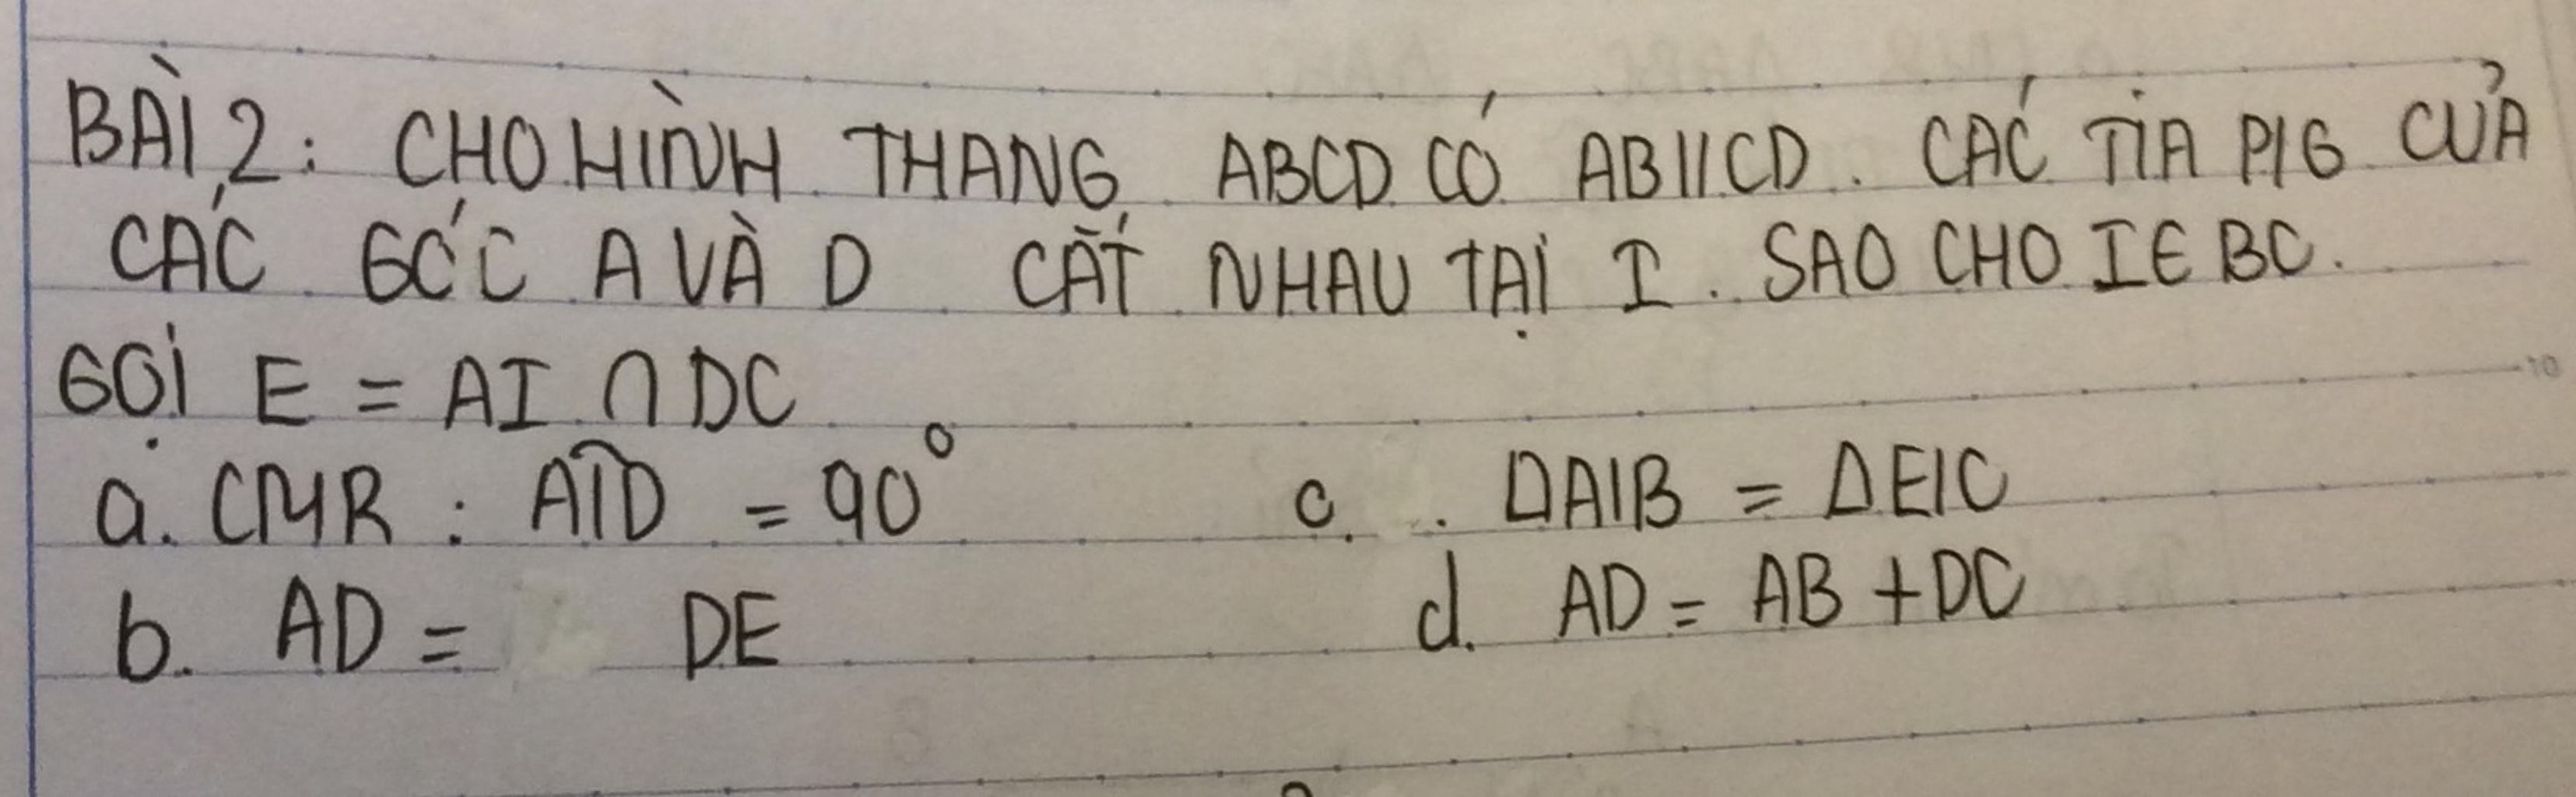 BÀI 2: CHO HÌNH THANG ABCD CÓ AB//CD. CÁC TIA P/G CỦA
CÁC GÓC A VÀ D CẮT NHAU TẠI I. SAO CHO I ∈ BC.
GỌI E = AI ∩ DC
a. CMR : AID = 90°
c. ΔAIB = ΔEIC
b. AD = DE
d. AD = AB + DC